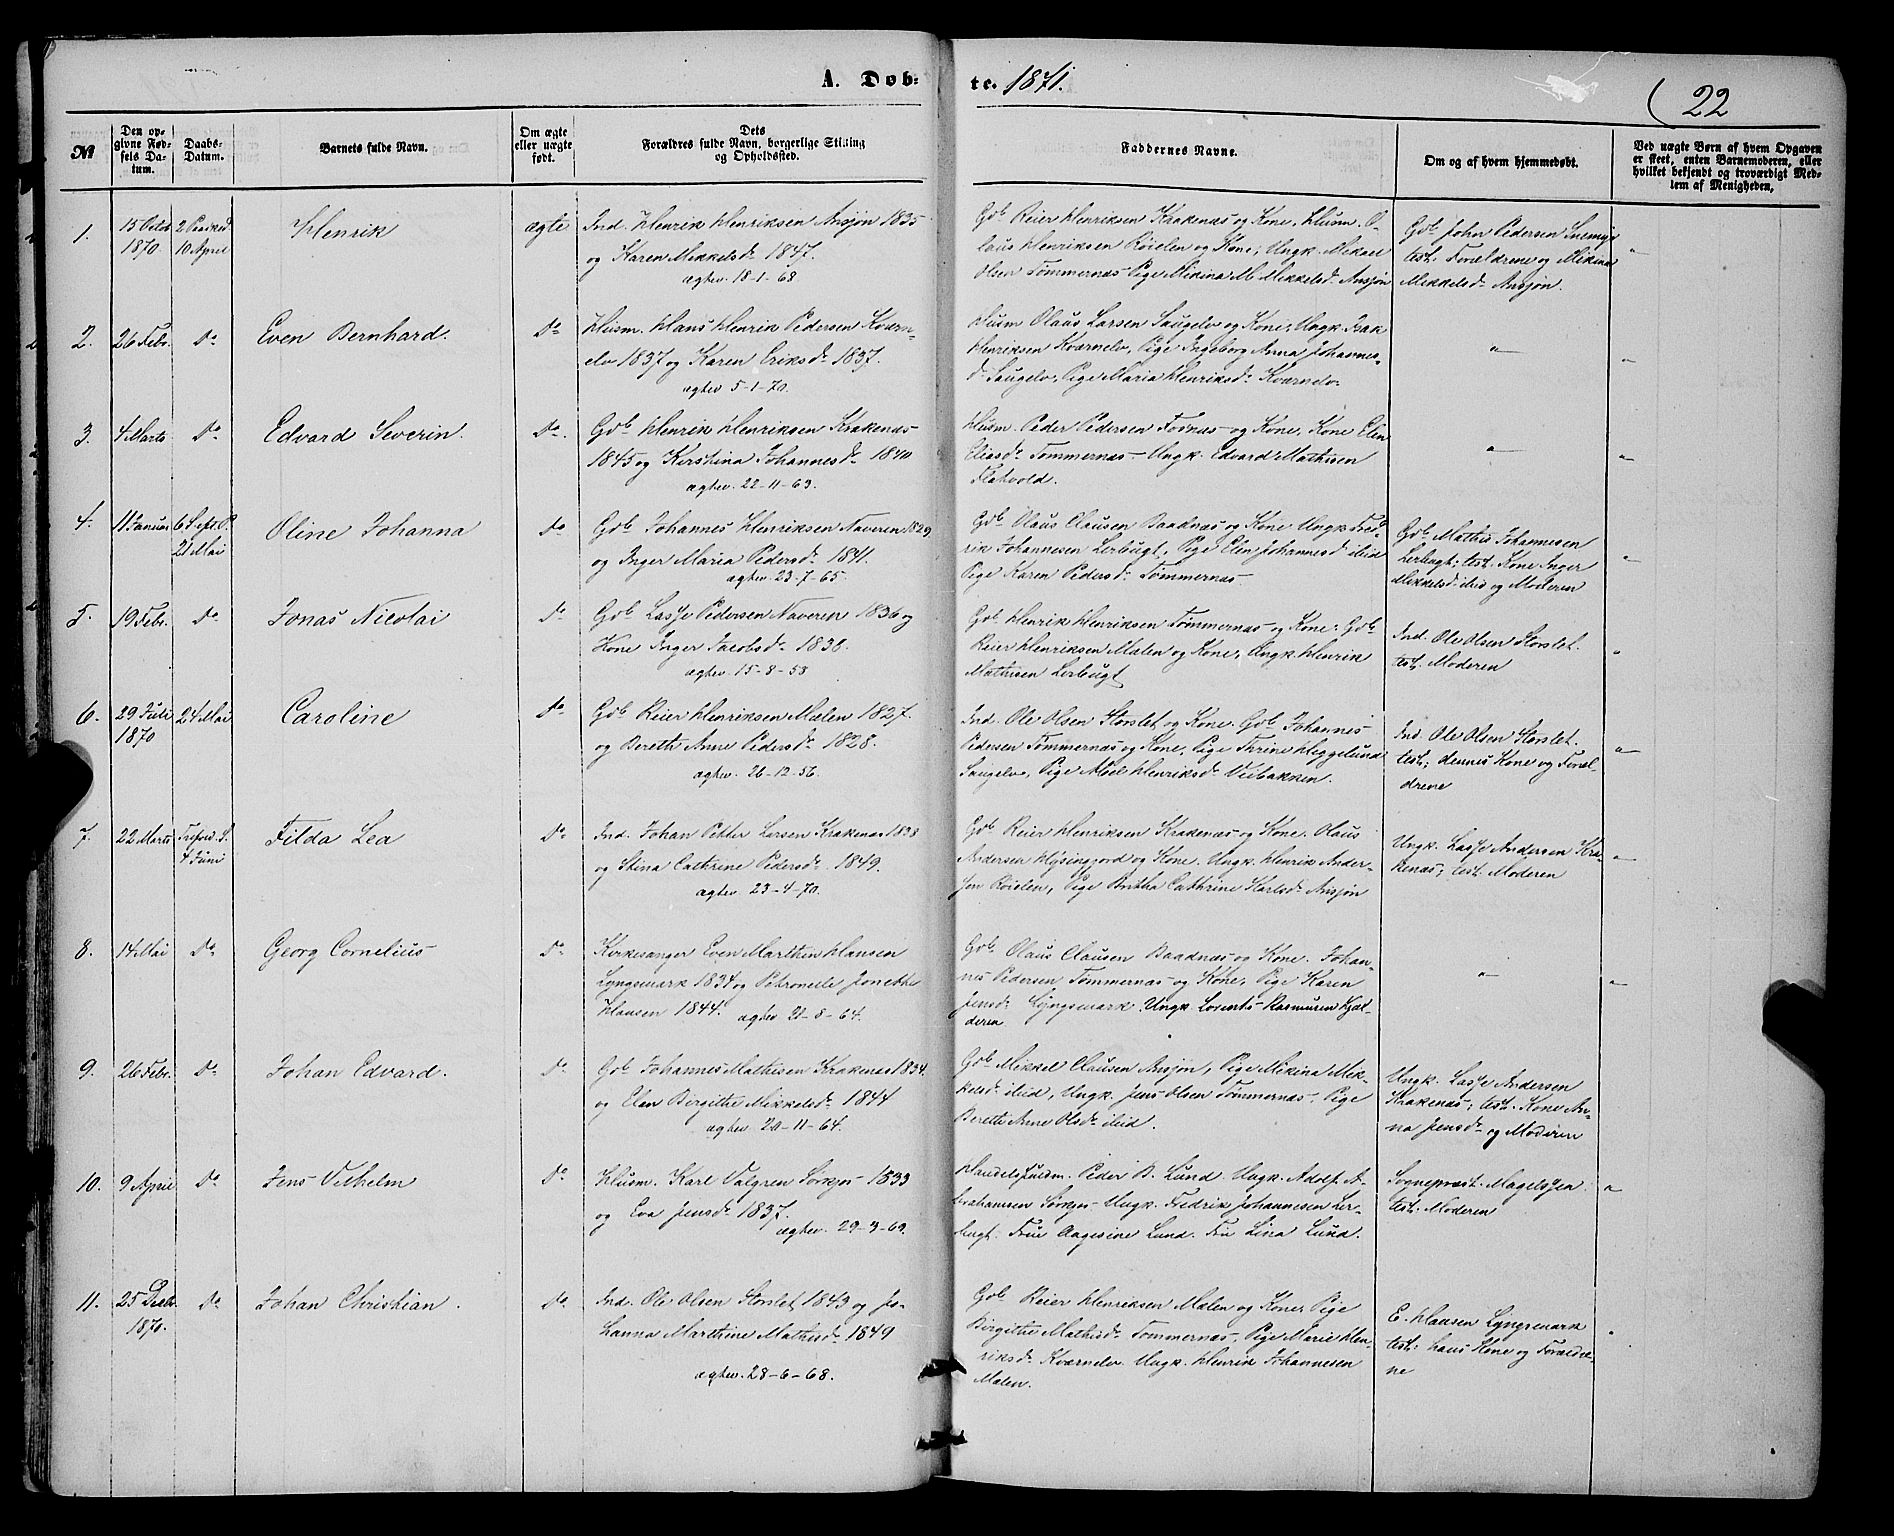 A. Døb-
te. 1871.
22
№
Den op-
givne Fød-
sels Da-
tum.
Daabs-
Datum.
Barnets fulde Navn.
Om ægte
eller uægte
født.
Dets
Forældres fulde Navn, borgerlige Stilling
og Opholdssted.
Faddernes Navne.
Om og af hvem hjemmedøbt.
Ved uægte Børn af hvem Opgaven
er skeet, enten Barnemoderen, eller
hvilket bekjendt og troværdigt Med-
lem af Menigheden.
1.
15 Octob
1870
2 Paaked
10 April
Henrik
ægte
Ind. Henrik Henriksen Ansjøn 1835
og Karen Mikkelsd. 1847.
ægtev 18-1-68
Gdb Reier Henriksen Krakenæs og Kone, Husm. O-
laus Henriksen Röielen og Kone; Ungk. Mikael
Olsen Tømmernæs Pige Mikina M. Mikkelsd. Ansjøn
Gdb John Pedersen
test. Forældrene og Mikina
Mikkelsd. Ansjøn.
"
2.
26 Febr.
Do
Even Bernhard.
Do
Husm. Hans Henrik Pedersen Kværn-
elv 1837 og Karen Eriksd. 1837.
ægtev 5-1-70.
Husm Olaus Larsen Saugelv og Kone, Ungk. Isak
Henriksen Kværnelv, Pige Ingeborg Anna Johannes-
d. Saugelv, Pige Maria Henriksd. Kværnelv.
"
"
3.
4 Marts
Do
Edvard Severin.
Do.
Gdb Henrik Henriksen Krakenæs
1845 og Kirstina Johannesd. 1840
ægtev. 22-11-69.
Husm. Peder Pedersen Fornæs og Kone, Kone Elen
Eliasd. Tømmernæs Ungk. Edvard Mathisen
Flatvold.
"
"
4.
11 Januar
6 S. eft. P.
21 Mai
Oline Johanna
Do
Gdb Johannes Henriksen Naveren 1829
og Inger Maria Pedersd. 1841.
ægtev. 23-7-65.
Gdb Olaus Clausen Baadnæs og Kone Ungk Fred-
rik Johannesen Lerbugt, Pige Elen Johannesd. ibid
Pige Karen Pedersd. Tømmernæs
Gdb Mathis Johannesen
Lerbugt; test. Kone Inger
Mikkelsd. ibid og Moderen
"
5.
19 Febr.
Do
Jonas Nicolai
Do
Gdb Lasse Pedersen Naveren 1836 og
Kone Inger Jacobsd. 1830.
ægtev. 15-8-58
Gdb Henrik Henriksen Tømmernæs og Kone. Gdb
Reier Henriksen Mælen og Kone, Ungk Henrik
Mathisen Lerbugt
Ind. Ole Olsen Storslet.
test. Moderen
"
6.
29 Juli
1870
24 Mai
Caroline
Do
Gdb Reier Henriksen Mælen 1827.
og Bereth Anne Pedersd. 1828.
ægtev. 26-12-56.
Ind. Ole Olsen Storslet og Kone. Gdb Johannes
Pedersen Tømmernæs og Kone, Pige Thrine Heggelund
Saugelv, Pige Henriksd. Veibakken.
Ind Ole Olsen Storslet.
test; dennes Kone og Foræl-
drene
"
7.
22 Marts
Trefold. S.
4 Juni
Tilda Lea
Do
Ind. Johan Petter Larsen Krakenæs 1838
og Stina Cathrine Pedersd. 1849.
ægtev. 23-4-70.
Gdb Reier Henriksen Krakenæs og Kone. Olaus
Andersen Hysingjord og Kone. Ungk. Henrik Ander-
sen Röielen, Pige Britha Cathrine Karlsd. Ansjøn
Ungk. Lasse Andersen Kra-
kenæs; test. Moderen
"
8.
14 Mai
Do
Georg Cornelius
Do
Kirkesanger Even Marthin Hansen
Lyngsmark 1834 og Petronelle Jonette
Hansen 1844. ægtev 21-8-64.
Gdb Olaus Clausen Baadnæs og Kone. Johan-
nes Pedersen Tømmernæs og Kone, Pige Karen
Jensd. Lyngsmark. Ungk. Lorents Rasmusen Kjæl-
deren
"
"
9.
26 Febr.
Do
Johan Edvard.
Do
Gdb Johannes Mathisen Krakenæs 1834.
og Elen Birgithe Mikkelsd. 1844
ægtev. 20-11-64.
Gdb Mikkel Clausen Ansjøn, Pige Mikina Mik-
kelsd. ibid, Ungk. Jens Olsen Tømmernæs. Pige
Bereth Anne Olsd. ibid.
Ungk. Lasse Andersen
Krakenæs; test. Kone An-
na Jensd. og Moderen
10.
9 April
Do
Jens Vilhelm
Do
Husm. Karl Valgren Sørkjos 1833
og Eva Jensd. 1837.
ægtev. 29-3-69.
Handelsfuldm. Peder B. Lund. Ungk. Adolf A-
brahamsen Sørkjos Ungk. Fredrik Johannesen Ler-
bugt. Frue Aagesine Lund. Fru Lina Lund.
Sogneprest. Magelssen
test. Moderen
"
11.
25 Decb.
1870.
Do
Johan Christian.
Do.
Ind. Ole Olsen Storslet 1843 og Jo-
hanna Marthine Mathisd. 1849
ægtev. 28-6-68.
Gdb Reier Henriksen Mælen og Kone, Pige
Birgithe Mathisd. Tømmernæs, Pige Marie Hen-
riksd. Kværnelv. Ungk. Henrik Johannesen
Mælen.
E. Hansen Lyngsmark
test. hans Kone og Forældre-
ne
"